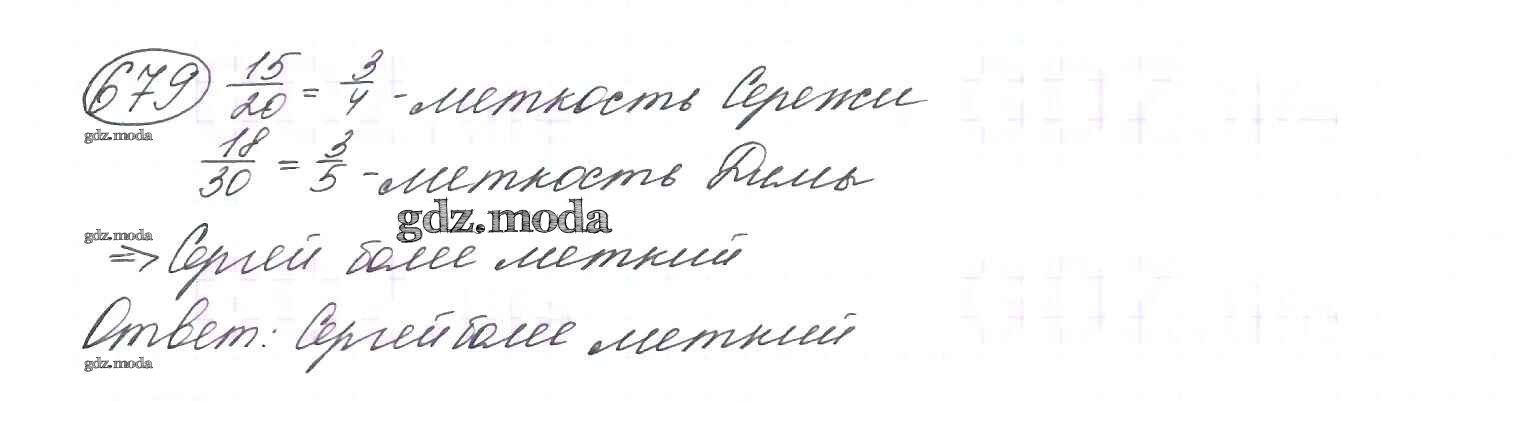 679 15/20 = 3/4 - меткость Сережи
gdz.moda
18/30 = 3/5 - меткость Димы
gdz.moda
gdz.moda
=> Сергей более меткий
Ответ: Сергей более меткий
gdz.moda